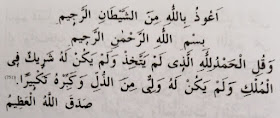 اَعُوذُ بِاللهِ مِنَ الشَّيْطَانِ الرَّجِيمِ
بِسْمِ اللهِ الرَّحْمٰنِ الرَّحِيمِ
وَقُلِ الْحَمْدُلِلّٰهِ الَّذِى لَمْ يَتَّخِذْ وَلَمْ يَكُنْ لَهُ شَرِيكٌ فِى
الْمُلْكِ وَلَمْ يَكُنْ لَهُ وَلِىٌّ مِنَ الذُّلِّ وَكَبِّرْهُ تَكْبِيرًا.
صَدَقَ اللهُ الْعَظِيمُ